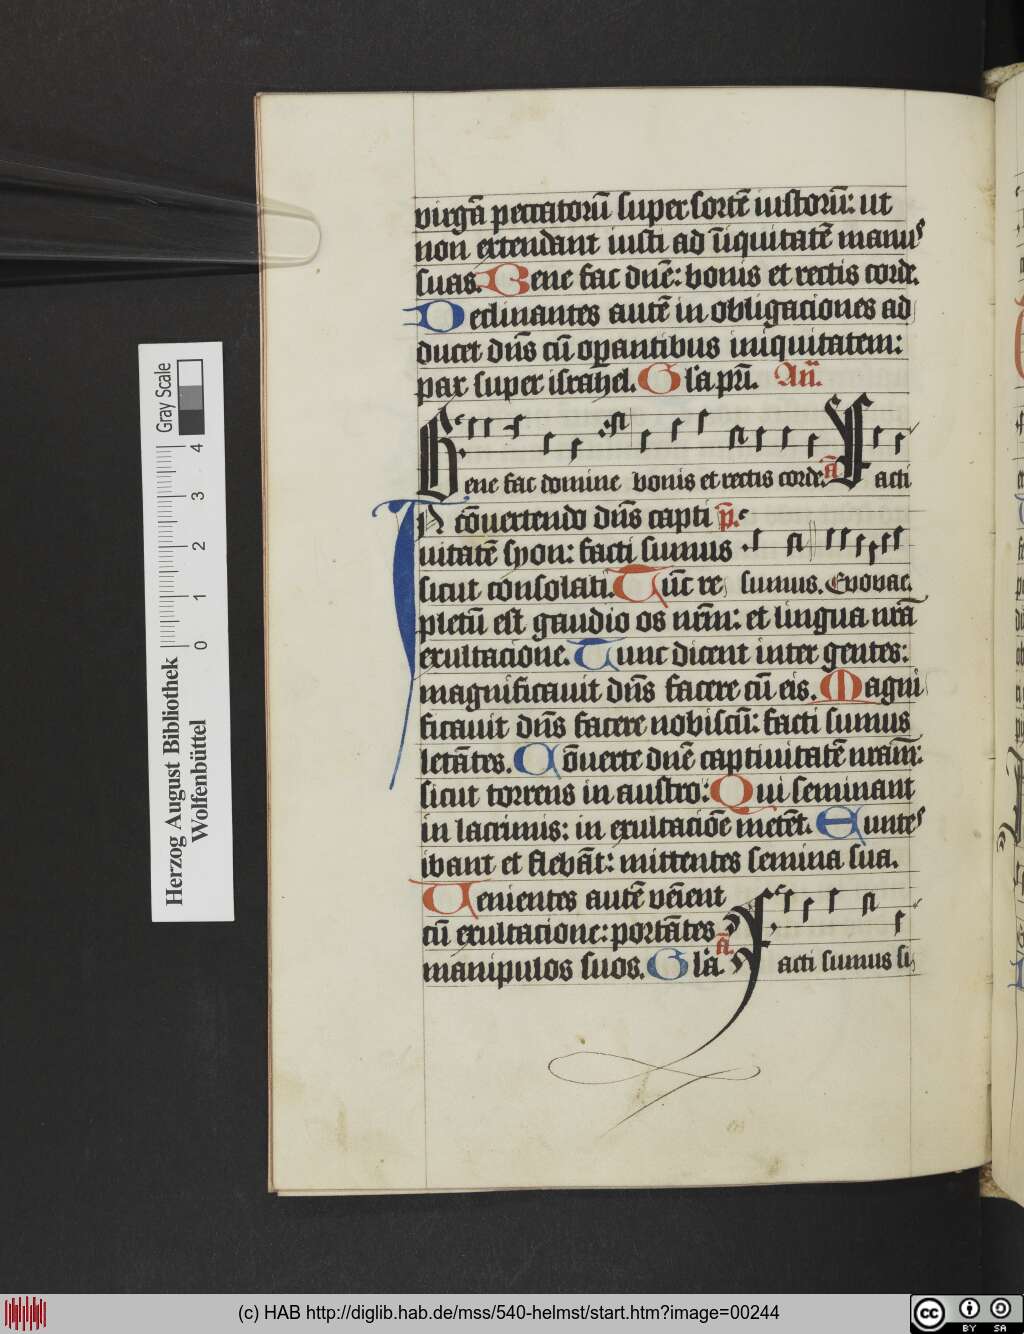 virgā peccatorū super sortē iustorū: ut
non extendant iusti ad ūiquitatē manus
suas. Bene fac dnē: bonis et rectis corde.
Declinantes autē in obligaciones ad
ducet dn̄s cū oꝑantibus iniquitatem:
pax super israhel. Gl'a pr̄i. An̄.
Bene fac domine bonis et rectis corde. a᷃ Facti
IN cōuertendo dn̄s capti p̄.
uitatē syon: facti sumus
sicut consolati. Tūc re sumus. Euouae.
pletū est gaudio os nr̄m: et lingua nr̄a
exultacione. Tunc dicent inter gentes:
magnificauit dn̄s facere cū eis. Magni
ficauit dn̄s facere nobiscū: facti sumus
letātes. Cōuerte dnē captiuitatē nr̄am:
sicut torrens in austro: Qui seminant
in lacrimis: in exultaciōe metēt. Euntes
ibant et flebāt: mittentes semina sua.
Uenientes autē vēient
cū exultacione: portātes a᷃
manipulos suos. Gl'a. Facti sumus si
Herzog August Bibliothek
Wolfenbüttel
0 1 2 3 4
Gray Scale
(c) HAB http://diglib.hab.de/mss/540-helmst/start.htm?image=00244
cc BY SA